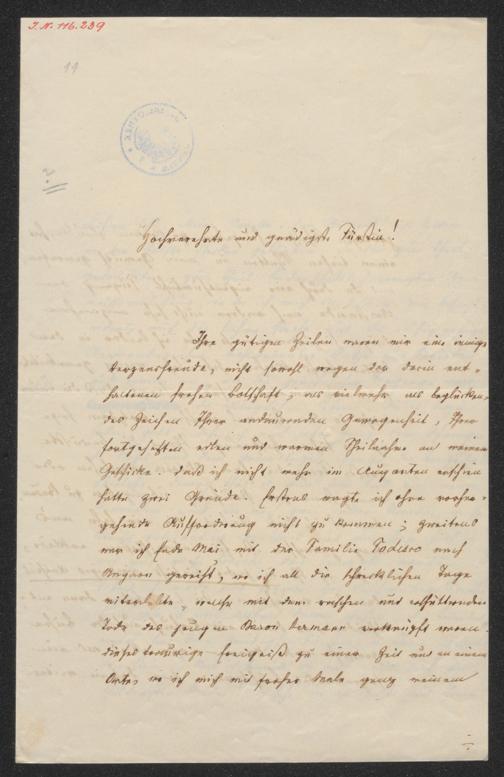 J.N. 116.239
11
?
Hochverehrte und gnädigste Fürstin!
Ihre gütigen Zeilen waren mir eine innige
Herzensfreude, nicht sowohl wegen der darin ent-
haltenen frohen Botschaft, als vielmehr als beglücken-
des Zeichen Ihrer andauernden Gewogenheit, Ihrer
fortgesetzten edlen und warmen Theilnahme an meinem
Geschicke. Daß ich nicht mehr im Augarten erschien
hatte zwei Gründe. Erstens wagte ich ohne vorher-
gehende Aufforderung nicht zu kommen; zweitens
war ich Ende Mai mit der Familie Todesco nach
Ungarn gereist, wo ich all die schrecklichen Tage
miterlebte, welche mit dem raschen und erschütternden
Tode des jungen Baron Hermann verknüpft waren.
Dieses traurige Ereigniß zu einer Zeit und an einem
Orte, wo ich mich mit froher Seele ganz meinem